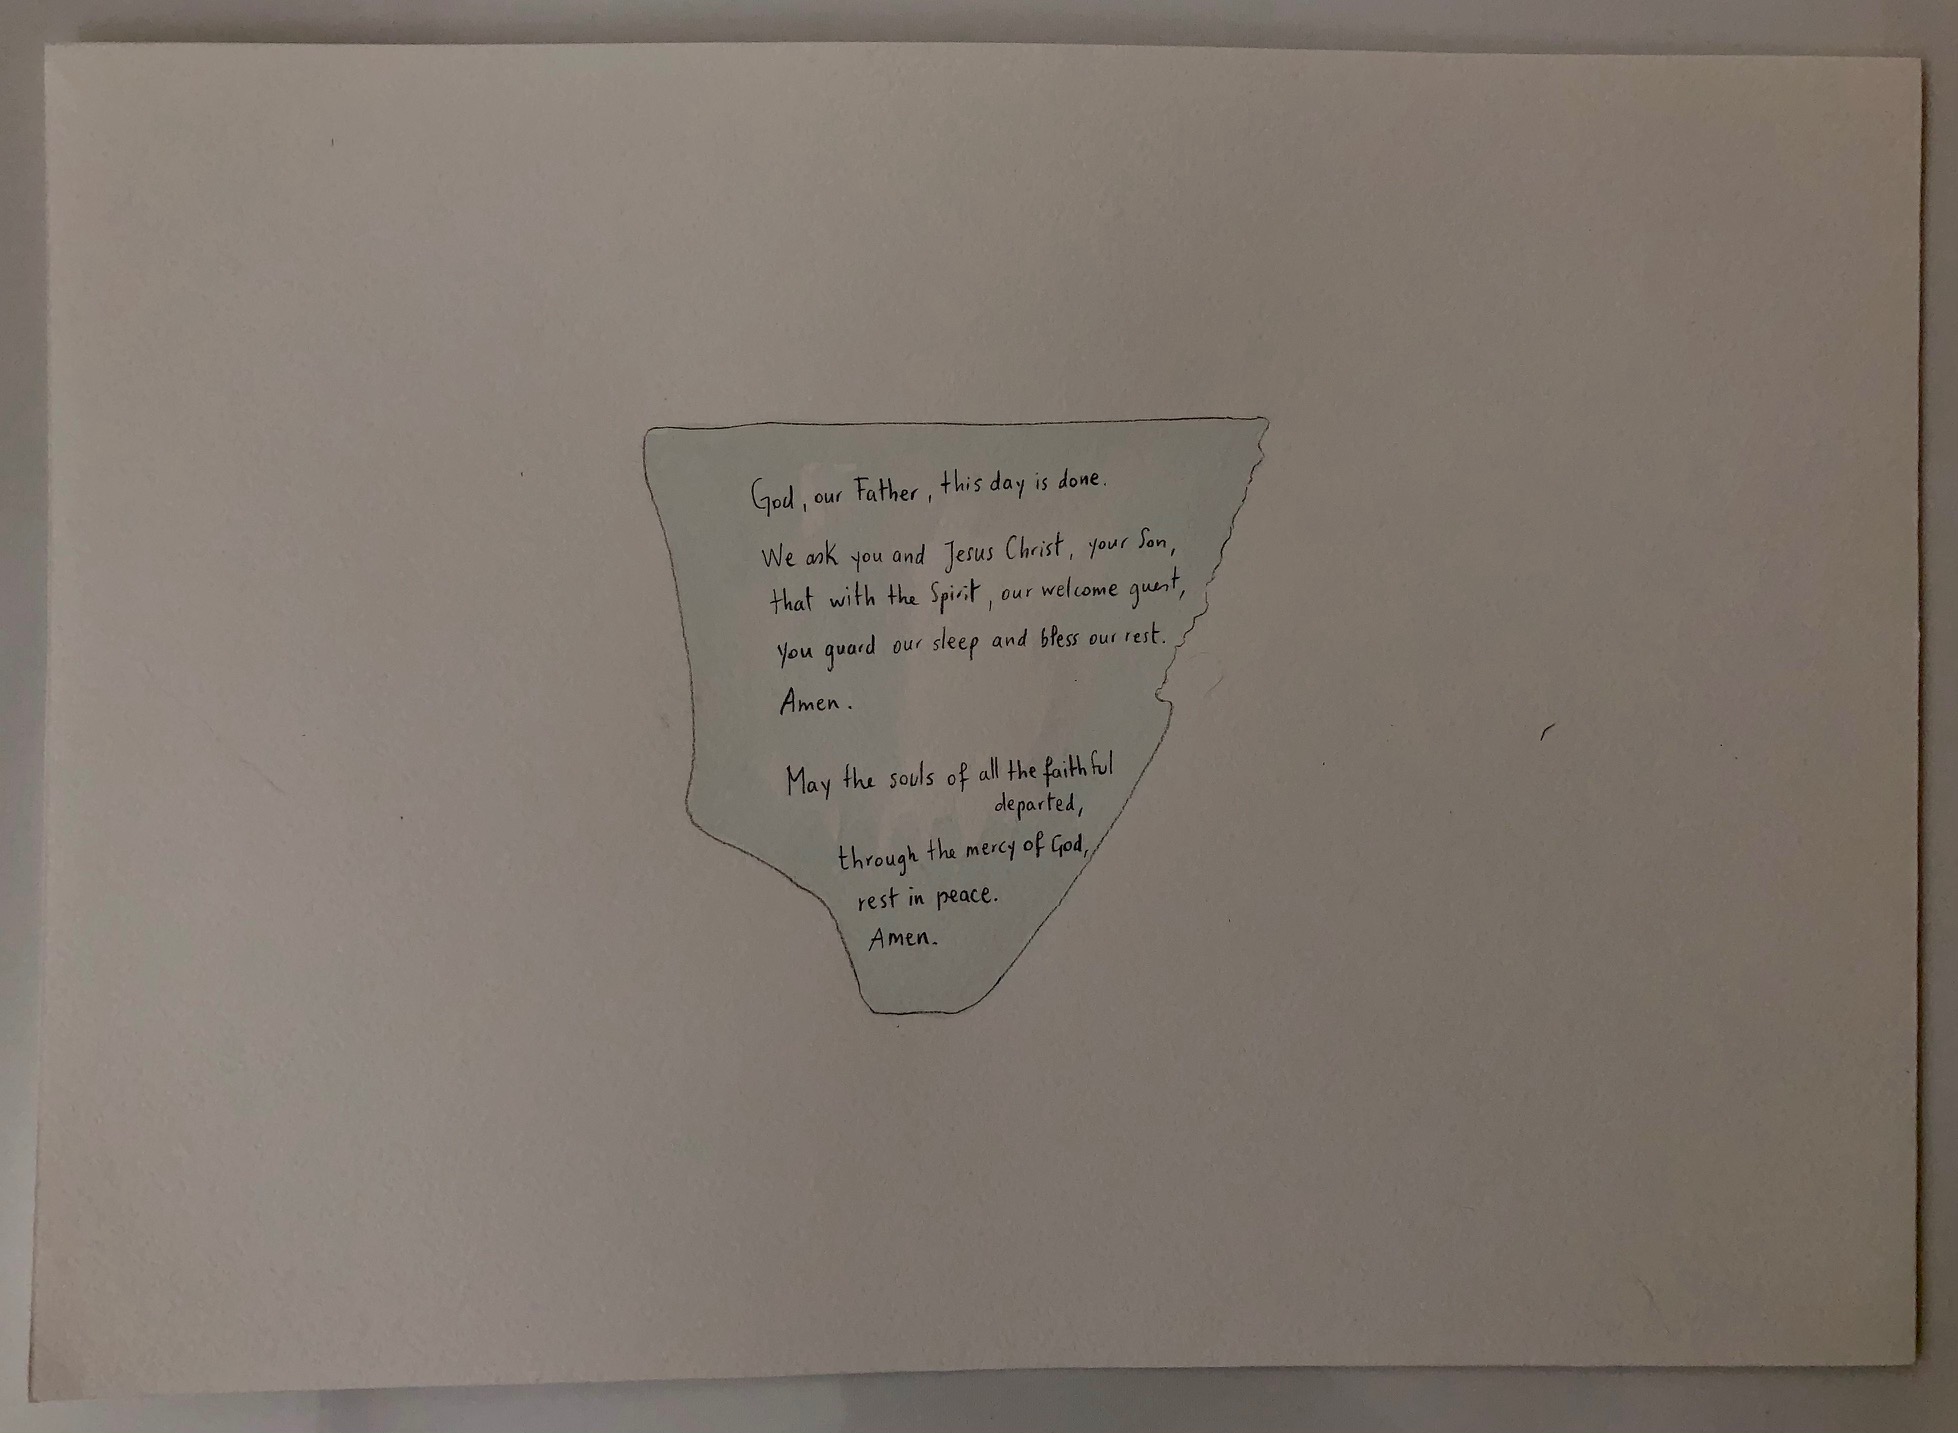 God, our Father, this day is done.
We ask you and Jesus Christ, your Son,
that with the Spirit, our welcome guest,
you guard our sleep and bless our rest.
Amen.
May the souls of all the faithful
departed,
through the mercy of God,
rest in peace.
Amen.